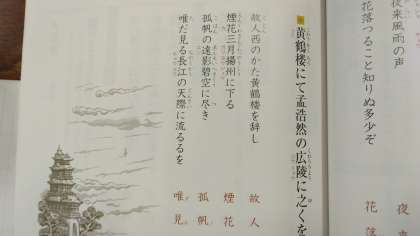 夜来風雨の声
花落つること知りぬ多少ぞ
夜来
花落
黄鶴楼にて孟浩然の広陵に之くを
故人西のかた黄鶴楼を辞し
煙花三月揚州に下る
孤帆の遠影碧空に尽き
唯だ見る長江の天際に流るるを
故人
煙花
孤帆
唯見